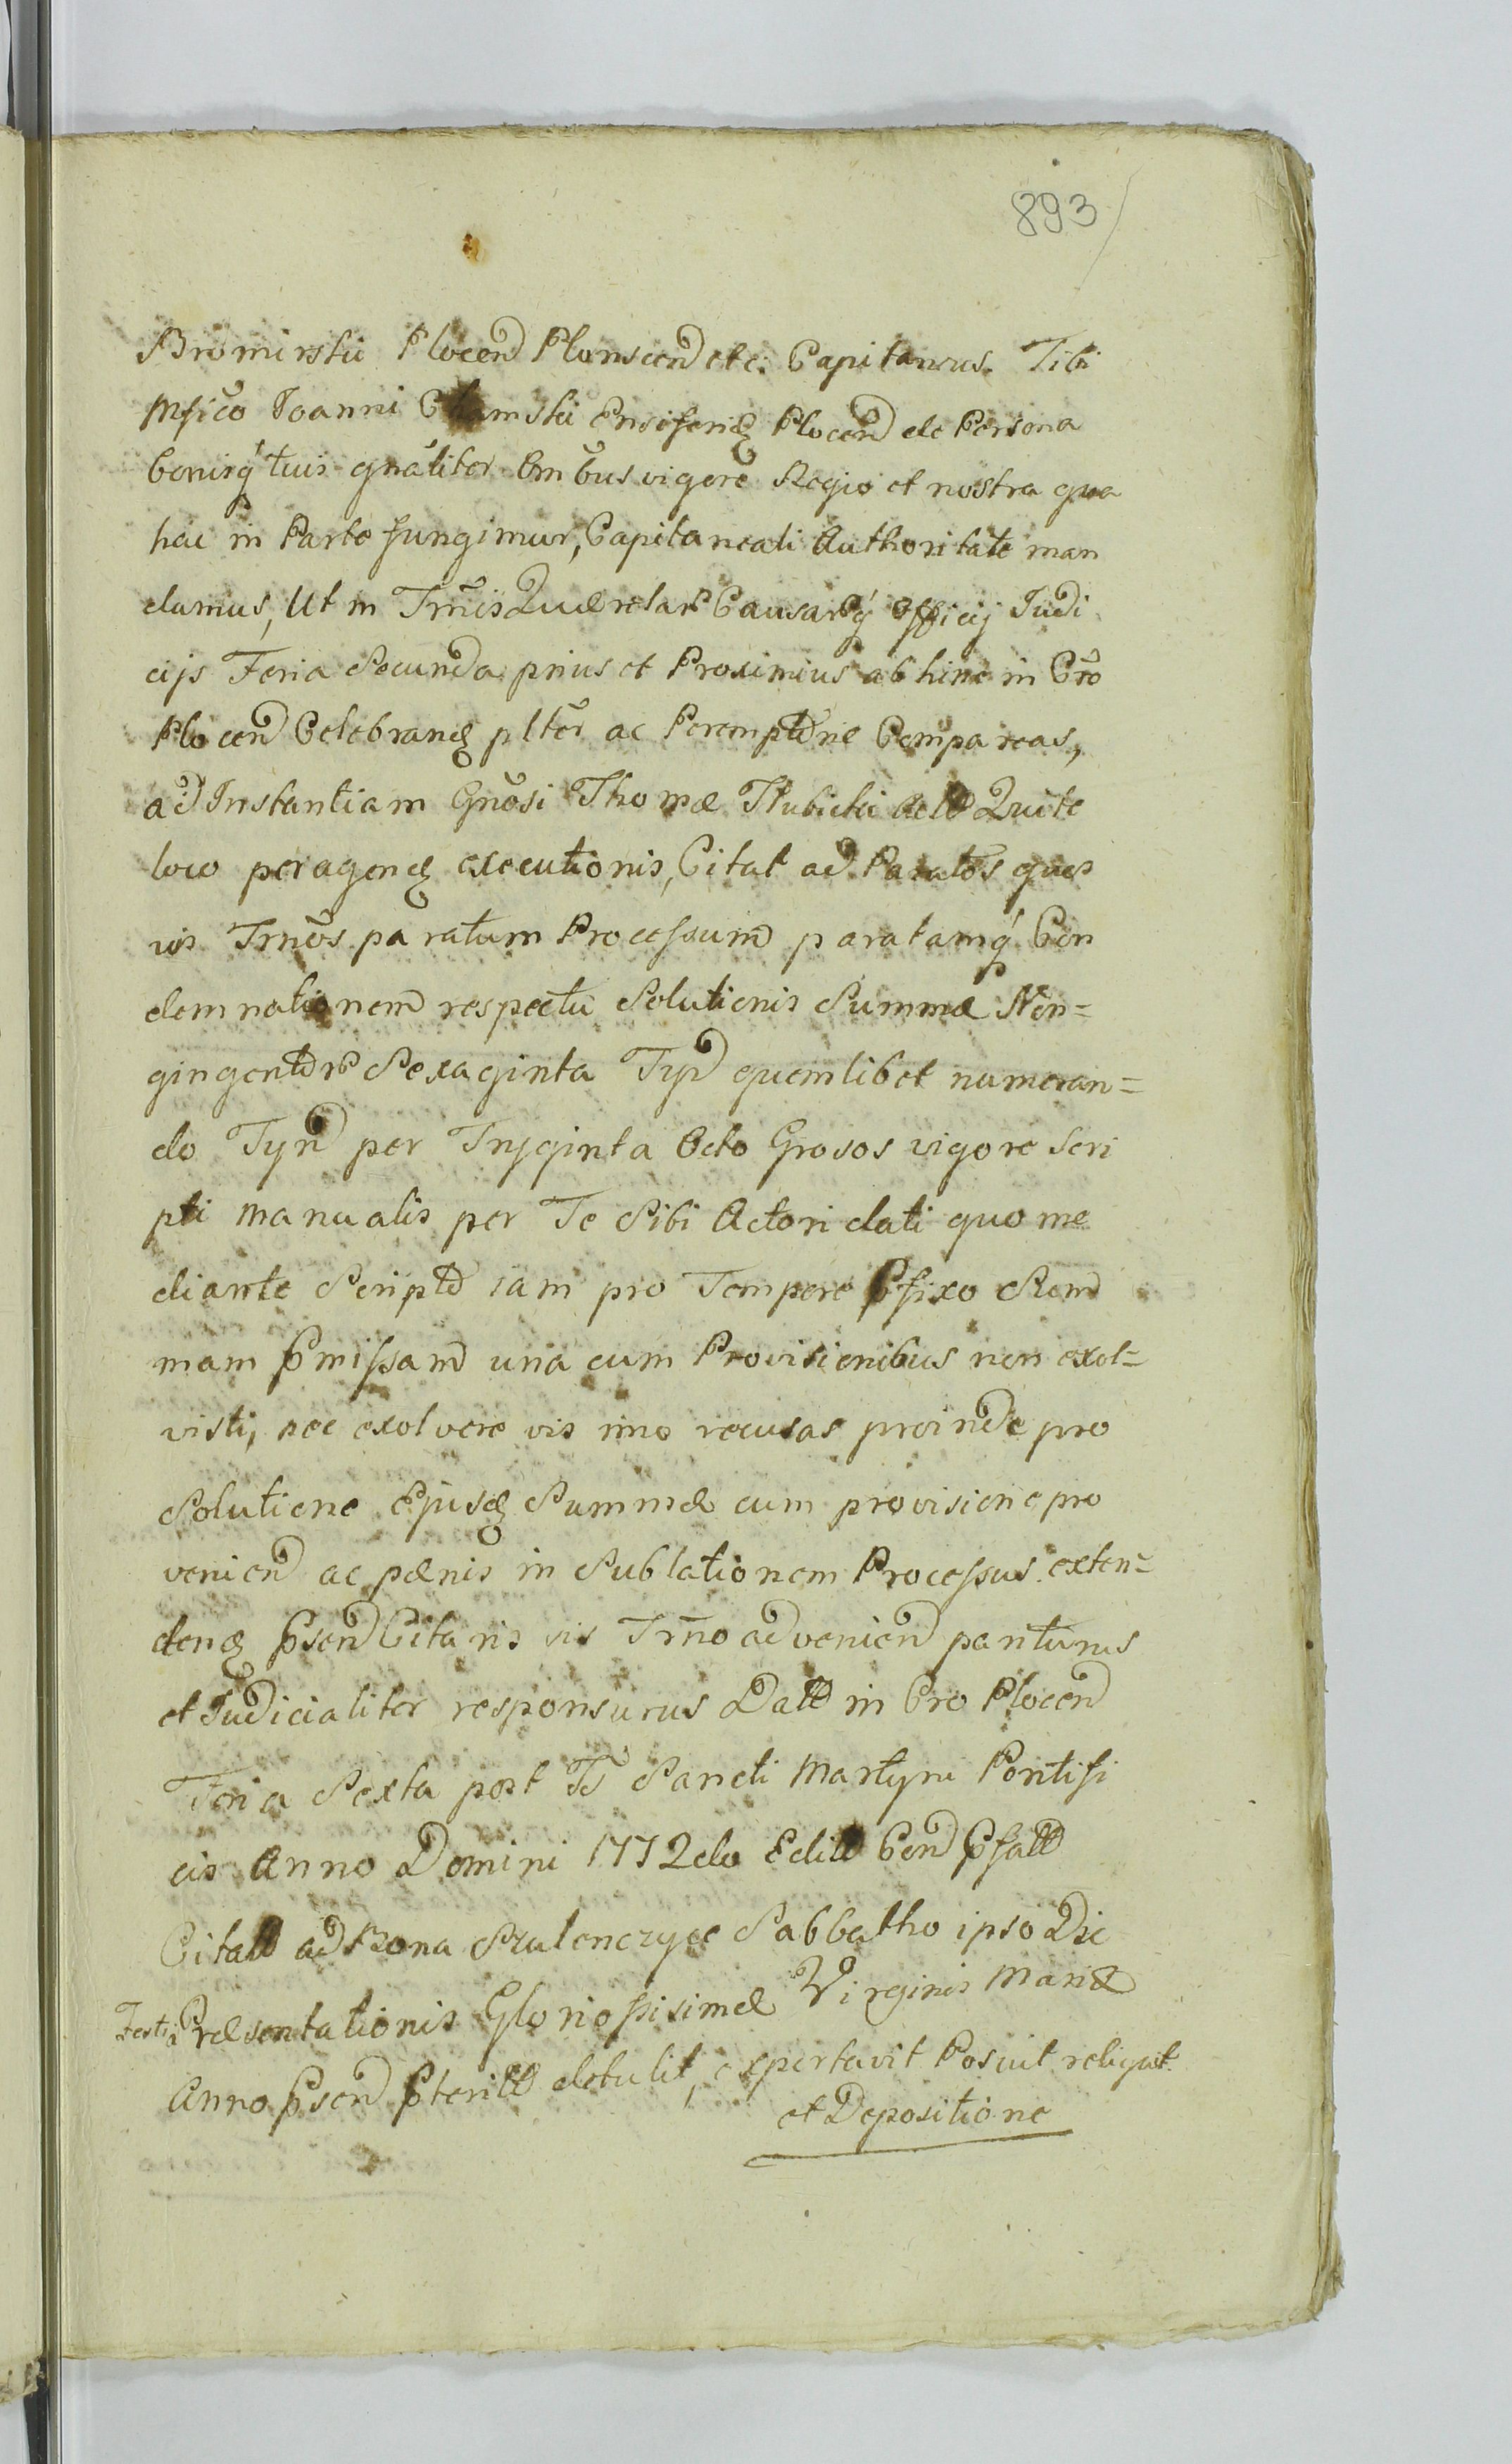 893
Bromirski Plocen Plonscen etc: Capitaneus. Tibi
Mfico Joanni Ensifero Plocen de Persona
bonisq tuis gnaliter omnibus vigore Regio et nostra qua
hac in Parte fungimur, Capitaneali Authoritate man
damus, Ut in Trnis Quærelar Causarq Officij Judi
cijs Feria Secunda prius et Proximius ab hinc in Cro
Plocen Celebrand pltter ac Peremptorie Compareas,
ad Instantiam Gnosi Thomæ Tlubicki Act Qui te
loco peragend executionis, Citat ad Paratos quos
vis Trnos paratum Processum paratamq Con
demnationem respectu Solutionis Summæ Non=
gingentor Sexaginta Typ quemlibet numeran=
do Tyn per Tryginta Octo Grosos vigore Scri
pti manualis per Te Sibi Actori dati quo me
diante Scripto iam pro Tempore Pfixo Sum
mam Pmissam una cum Provisionibus non exol=
visti, nec exolvere vis imo recusas proinde pro
Solutione Ejusd Summæ cum provisione pro
venien ac pænis in Sublationem Processus exten=
dend Psen Citaris sis Trno advenien pariturus
et Judicialiter responsurus Datt in Cro Plocen
Feria Sexta post Ts Sancti Martyni Pontifi
cis Anno Domini 1772do Editt Con Pfatt
Citatt ad Bona Szulenczyce Sabbatho ipso Die
Festi Præsentationis Gloriossisimæ Virginis Mariæ
Anno Psen Pteritt detulit, exportavit Posuit reliquit
et Depositione